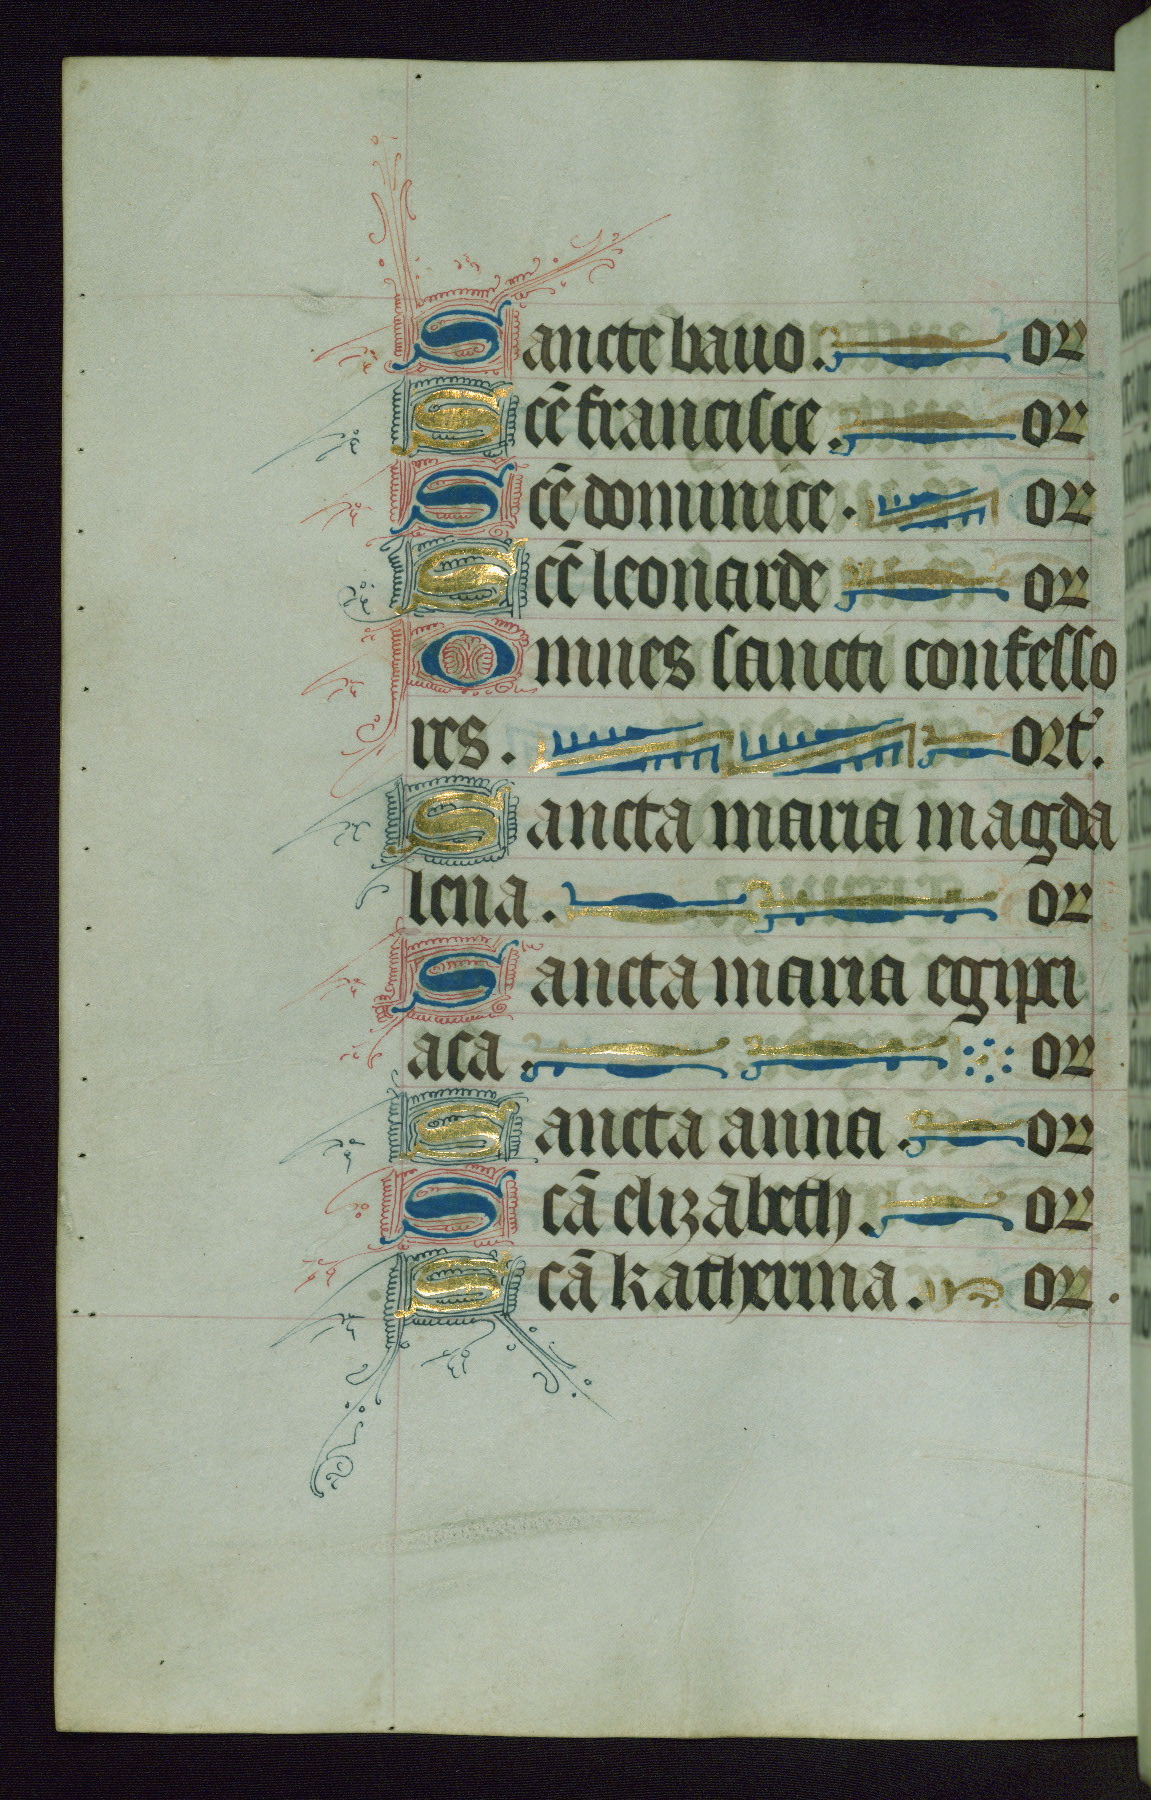 Sancte bauo. or
Scē francisce. or
Scē dominice. or
Scē leonarde or
Omnes sancti confesso
res. ort'.
Sancta maria magda
lena. or
Sancta maria egipci
aca. or
Sancta anna. or
Scā elizabeth. or
Scā katherina. or.